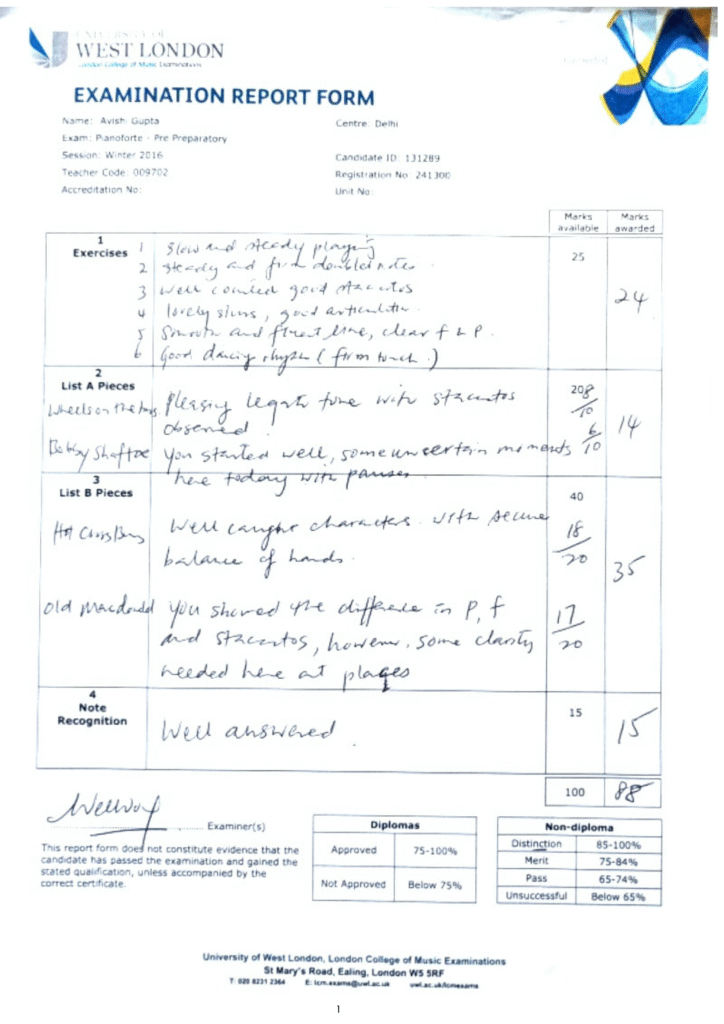 UNIVERSITY OF
WEST LONDON
London College of Music Examinations
EXAMINATION REPORT FORM
Name: Avishi Gupta
Centre: Delhi
Exam: Pianoforte - Pre Preparatory
Session: Winter 2016
Candidate ID: 131289
Teacher Code: 009702
Registration No: 241300
Accreditation No:
Unit No:
Marks available
Marks awarded
1
Exercises
25
24
1 Slow and steady playing
2 Steady and firm double notes.
3 Well counted good staccatos
4 lovely slurs, good articulation.
5 Smooth and fluent line, clear f & p.
6 Good dancing rhythm (firm touch.)
2
List A Pieces
20
14
Wheels on the bus. Pleasing legato tune with staccatos
observed.
8/10
Bobby Shaftoe you started well, some uncertain moments
here today with pauses
6/10
3
List B Pieces
40
35
Hot Cross Buns Well caught characters. with secure
balance of hands.
18/20
Old Macdonald You showed the difference in P, f
and staccatos, however, some clarity
needed here at places
17/20
4
Note
Recognition
15
15
Well answered.
100
88
Examiner(s)
This report form does not constitute evidence that the
candidate has passed the examination and gained the
stated qualification, unless accompanied by the
correct certificate.
Diplomas
Approved 75-100%
Not Approved Below 75%
Non-diploma
Distinction 85-100%
Merit 75-84%
Pass 65-74%
Unsuccessful Below 65%
University of West London, London College of Music Examinations
St Mary's Road, Ealing, London W5 5RF
T: 020 8231 2364 E: lcm.exams@uwl.ac.uk uwl.ac.uk/lcmexams
1